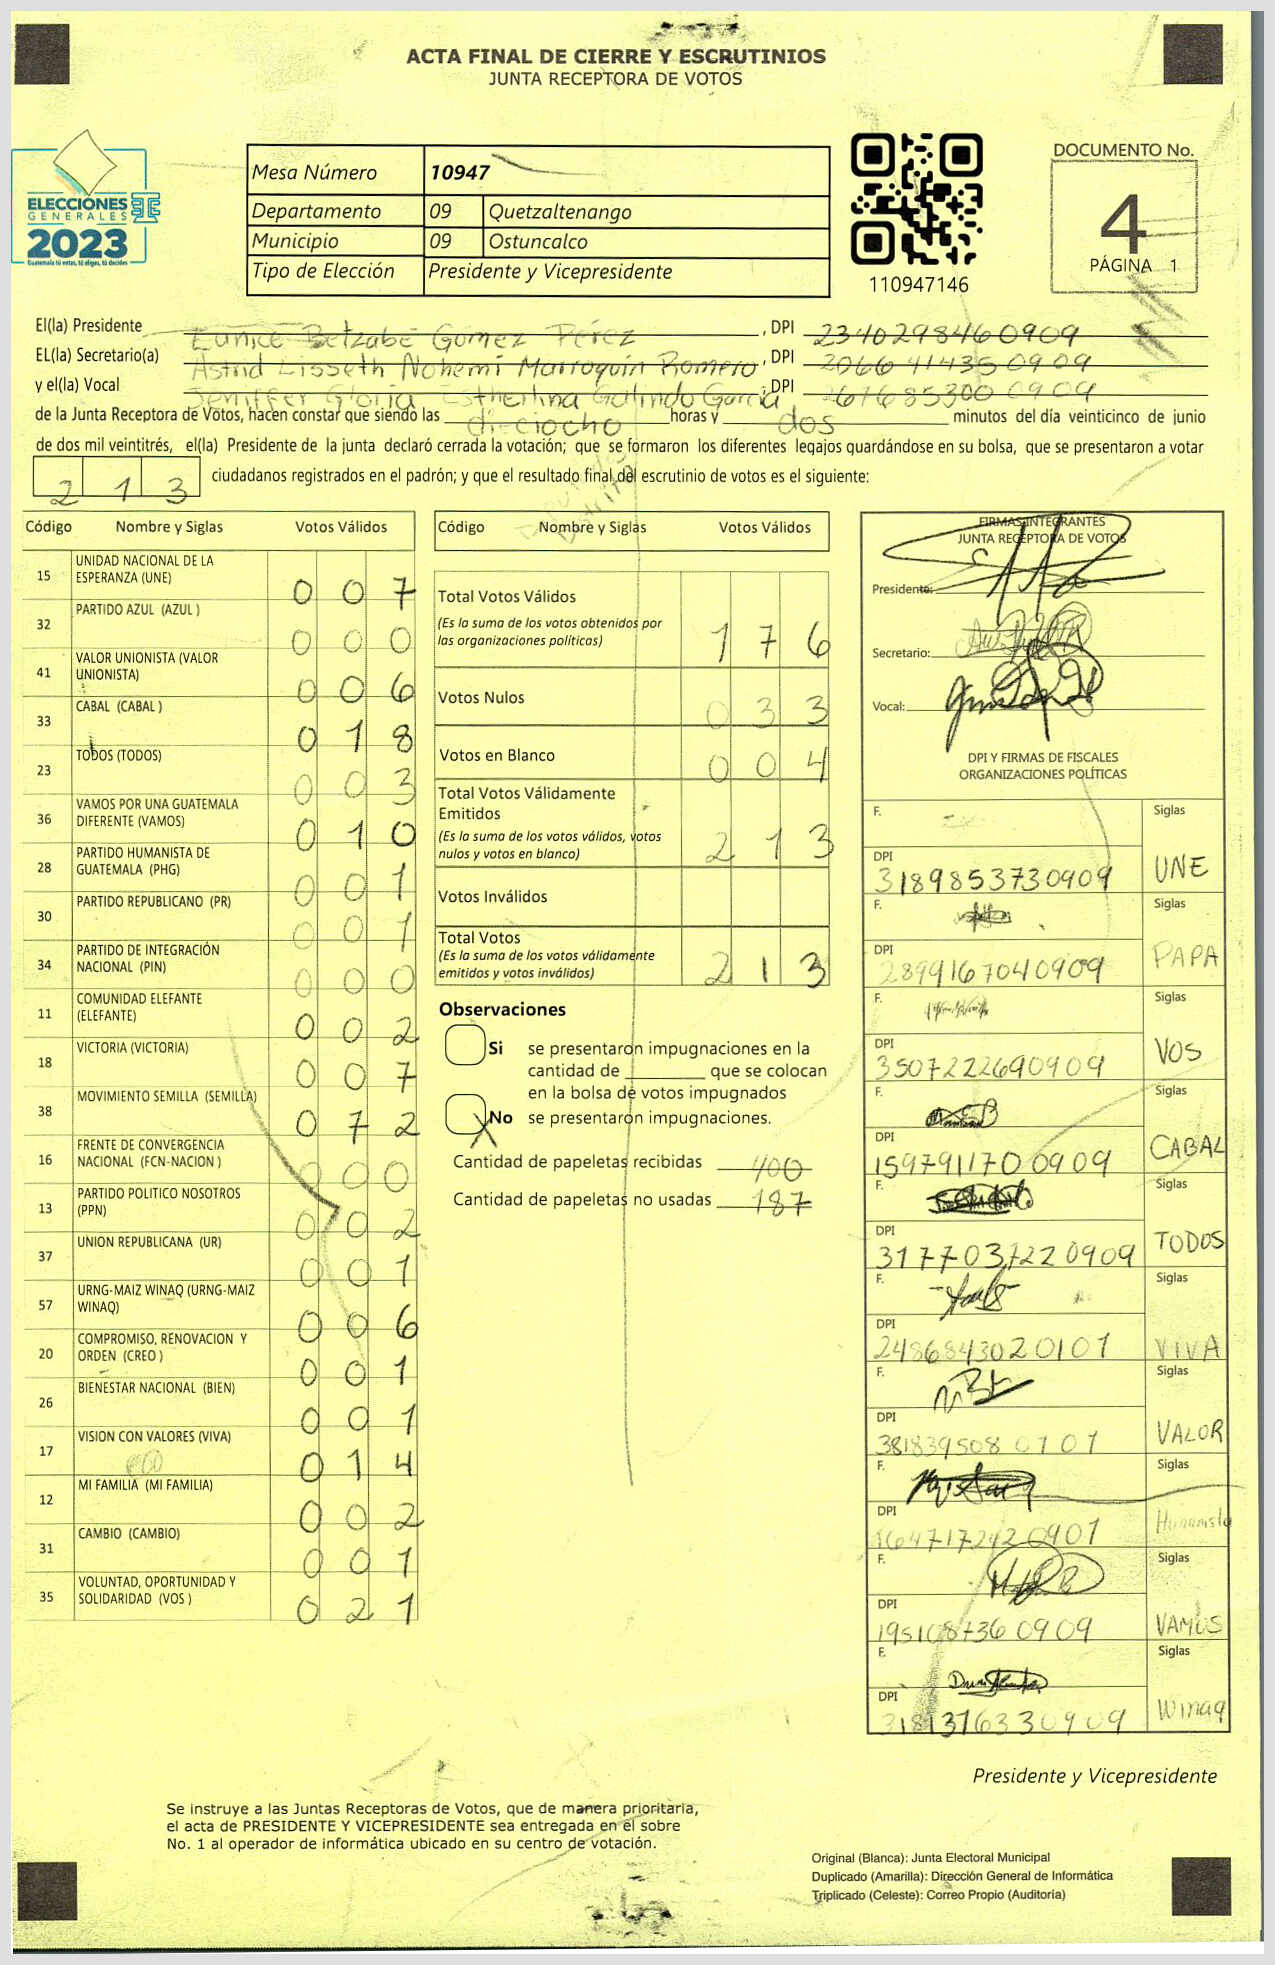 ACTA FINAL DE CIERRE Y ESCRUTINIOS
JUNTA RECEPTORA DE VOTOS
ELECCIONES
GENERALES
2023
Guatemala tú votas, tú eliges, tú decides
Mesa Número 10947
Departamento 09 Quetzaltenango
Municipio 09 Ostuncalco
Tipo de Elección Presidente y Vicepresidente
110947146
DOCUMENTO No.
4
PÁGINA 1
El(la) Presidente Eunice Betzabé Gómez Pérez, DPI 2340298460909
EL(la) Secretario(a) Astrid Lisseth Nohemí Marroquín Romero, DPI 2066414350909
y el(la) Vocal Jeniffer Gloria Estherlina Galindo García, DPI 2616853000909
de la Junta Receptora de Votos, hacen constar que siendo las dieciocho horas y dos minutos del día veinticinco de junio
de dos mil veintitrés, el(la) Presidente de la junta declaró cerrada la votación; que se formaron los diferentes legajos guardándose en su bolsa, que se presentaron a votar
213 ciudadanos registrados en el padrón; y que el resultado final del escrutinio de votos es el siguiente:
Código Nombre y Siglas Votos Válidos
15 UNIDAD NACIONAL DE LA ESPERANZA (UNE) 007
32 PARTIDO AZUL (AZUL ) 000
41 VALOR UNIONISTA (VALOR UNIONISTA) 006
33 CABAL (CABAL ) 018
23 TODOS (TODOS) 003
36 VAMOS POR UNA GUATEMALA DIFERENTE (VAMOS) 010
28 PARTIDO HUMANISTA DE GUATEMALA (PHG) 001
30 PARTIDO REPUBLICANO (PR) 001
34 PARTIDO DE INTEGRACIÓN NACIONAL (PIN) 000
11 COMUNIDAD ELEFANTE (ELEFANTE) 002
18 VICTORIA (VICTORIA) 007
38 MOVIMIENTO SEMILLA (SEMILLA) 072
16 FRENTE DE CONVERGENCIA NACIONAL (FCN-NACION ) 000
13 PARTIDO POLITICO NOSOTROS (PPN) 002
37 UNION REPUBLICANA (UR) 001
57 URNG-MAIZ WINAQ (URNG-MAIZ WINAQ) 006
20 COMPROMISO, RENOVACION Y ORDEN (CREO ) 001
26 BIENESTAR NACIONAL (BIEN) 001
17 VISION CON VALORES (VIVA) 014
12 MI FAMILIA (MI FAMILIA) 002
31 CAMBIO (CAMBIO) 001
35 VOLUNTAD, OPORTUNIDAD Y SOLIDARIDAD (VOS ) 021
Código Nombre y Siglas Votos Válidos
Total Votos Válidos 176
(Es la suma de los votos obtenidos por
las organizaciones políticas)
Votos Nulos 033
Votos en Blanco 004
Total Votos Válidamente
Emitidos 213
(Es la suma de los votos válidos, votos
nulos y votos en blanco)
Votos Inválidos
Total Votos 213
(Es la suma de los votos válidamente
emitidos y votos inválidos)
Observaciones
Si se presentaron impugnaciones en la
cantidad de ________ que se colocan
en la bolsa de votos impugnados
X No se presentaron impugnaciones.
Cantidad de papeletas recibidas 400
Cantidad de papeletas no usadas 187
FIRMAS INTEGRANTES
JUNTA RECEPTORA DE VOTOS
Presidente:
Secretario:
Vocal:
DPI Y FIRMAS DE FISCALES
ORGANIZACIONES POLÍTICAS
F. Siglas
DPI 3189853730909 UNE
F. Siglas
DPI 2899167040909 PAPA
F. Siglas
DPI 3507222690909 VOS
F. Siglas
DPI 1597911700909 CABAL
F. Siglas
DPI 3177037220909 TODOS
F. Siglas
DPI 2486843020101 VIVA
F. Siglas
DPI 3818395080101 VALOR
F. Siglas
DPI 1647172420901 Humanista
F. Siglas
DPI 1951087360909 VAMOS
F. Siglas
DPI 3181376330909 Winaq
Presidente y Vicepresidente
Se instruye a las Juntas Receptoras de Votos, que de manera prioritaria,
el acta de PRESIDENTE Y VICEPRESIDENTE sea entregada en el sobre
No. 1 al operador de informática ubicado en su centro de votación.
Original (Blanca): Junta Electoral Municipal
Duplicado (Amarilla): Dirección General de Informática
Triplicado (Celeste): Correo Propio (Auditoría)